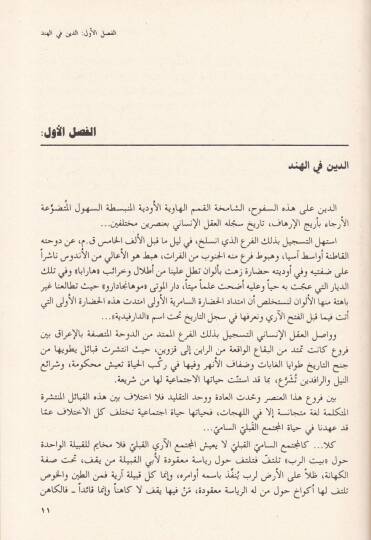 الفصل الأول: الدين في الهند
الفصل الأول:
الدين في الهند
الدين على هذه السفوح، الشامخة القمم الهاوية الأودية المنبسطة السهول المُتضوّعة
الأرجاء بأريج الإرهاف، تاريخ سجّله العقل الإنساني بعنصرين مختلفين...
استهل التسجيل بذلك الفرع الذي انسلخ، في ليل ما قبل الألف الخامس ق.م، عن دوحته
القاطنة أواسط آسيا، وهبوط فرع منه الجنوب من الفرات، هبط هو الأعالي من الأندوس ناشراً
على ضفتيه وفي أوديته حضارة زهت بألوان تطل علينا من أطلال وخرائب «هارابا» وفي تلك
الديار التي عجّت به حياً وعليه أضحت علماً ميتاً، دار الموتى «موهانجادارو» حيث تطالعنا غير
باهتة منها الألوان لنستخلص أن امتداد الحضارة السامرية الأولى امتدت هذه الحضارة الأولى التي
أتت فيما قبل الفتح الآري ونعرفها في سجل التاريخ تحت اسم «الدارفيدية»...
وواصل العقل الإنساني التسجيل بذلك الفرع الممتد من الدوحة المتصفة بالإعراق بين
فروع كانت تمتد من البقاع الواقعة من الراين إلى قزوين، حيث انتشرت قبائل يطويها من
جنح التاريخ طوايا الغابات وضفاف الأنهر وفيها في ركب الحياة تعيش محكومة، وشرائع
النيل والرافدين تُشْرَع، بما قد استنّت حياتها الاجتماعية لها من شريعة.
بين فروع هذا العنصر وتحدت العادة ووحد التقليد فلا اختلاف بين هذه القبائل المنتشرة
المتكلمة لغة متجانسة إلا في اللهجات، فحياتها حياة اجتماعية تختلف كل الاختلاف عمّا
قد عهدنا في حياة المجتمع القَبليّ الساميّ...
كلا... كالمجتمع الساميّ القبليّ لا يعيش المجتمع الآري القبليّ فلا مخايم للقبيلة الواحدة
حول «بيت الرب» تلتفّ فتلتف حول رياسة معقودة لأبي القبيلة من يقف، تحت صفة
الكهانة، ظلاً على الأرض لرب يُنفّذ باسمه أوامره، وإنما كل قبيلة آرية فمن الطين والخوص
تلتف لها أكواخ حول من له الرياسة معقودة، مَنْ فيها يقف لا كاهناً وإنما قائداً ــ فالكاهن
١١